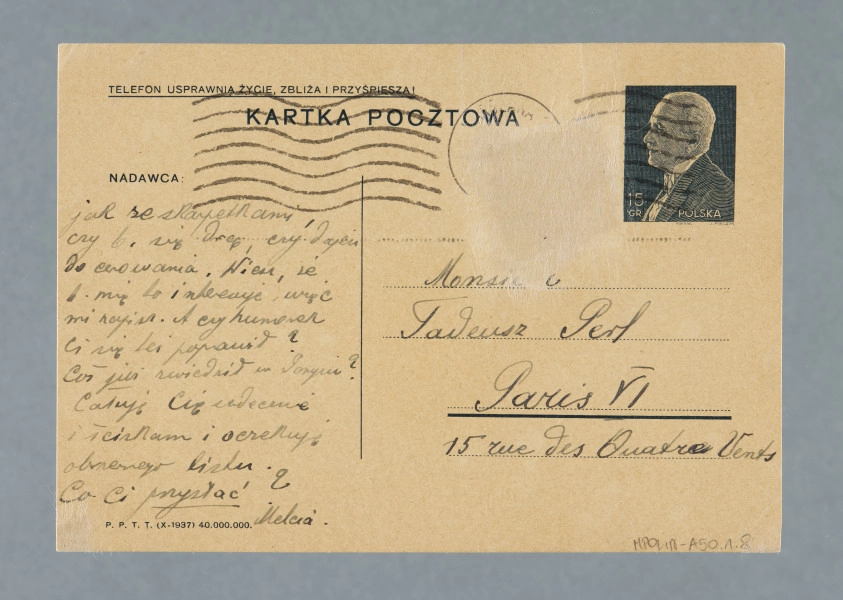 TELEFON USPRAWNIA ŻYCIE, ZBLIŻA I PRZYŚPIESZA!
KARTKA POCZTOWA
15
GR
POLSKA
NADAWCA:
jak ze skarpetkami,
czy b. się drą, czy dajesz
do cerowania. Wiesz, że
b. mię to interesuje, więc
mi napisz. A czy humorek
Ci się też poprawił?
Coś już zwiedził w Paryżu?
Całuję Cię serdecznie
i ściskam i oczekuję
obszernego listu.
Co Ci przysłać?
Melcia.
P. P. T. T. (X-1937) 40.000.000.
Tadeusz Perl
Paris VI
15 rue des Quatre Vents
MPOLIN-A50.1.8